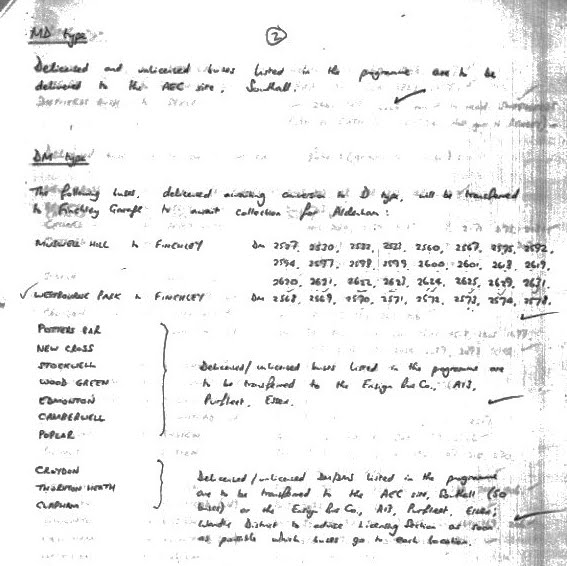 MD type
②
Delicensed and unlicensed buses listed in the programme are to be
delivered to the AEC site, Southall.
DM type
The following buses, delicensed awaiting conversion to D type, will be transferred
to Finchley Garage to await collection for Aldenham:
MUSWELL HILL to FINCHLEY DM 2527, 2530, 2532, 2533, 2560, 2567, 2575, 2592,
2594, 2597, 2598, 2599, 2600, 2601, 2618, 2619,
2620, 2621, 2622, 2623, 2624, 2625, 2629, 2631.
✓ WESTBOURNE PARK to FINCHLEY DM 2568, 2569, 2570, 2571, 2572, 2573, 2574, 2578.
POTTERS BAR
NEW CROSS
STOCKWELL
WOOD GREEN
EDMONTON
CAMBERWELL
POPLAR
Delicensed/unlicensed buses listed in the programme are
to be transferred to the Ensign Bus Co., A13,
Purfleet, Essex.
CROYDON
THORNTON HEATH
CLAPHAM
Delicensed/unlicensed DM/DMS listed in the programme
are to be transferred to the AEC site, Southall (50
buses) or the Ensign Bus Co., A13, Purfleet, Essex;
Wandle District to advise Licensing Section as soon
as possible which buses go to each location.